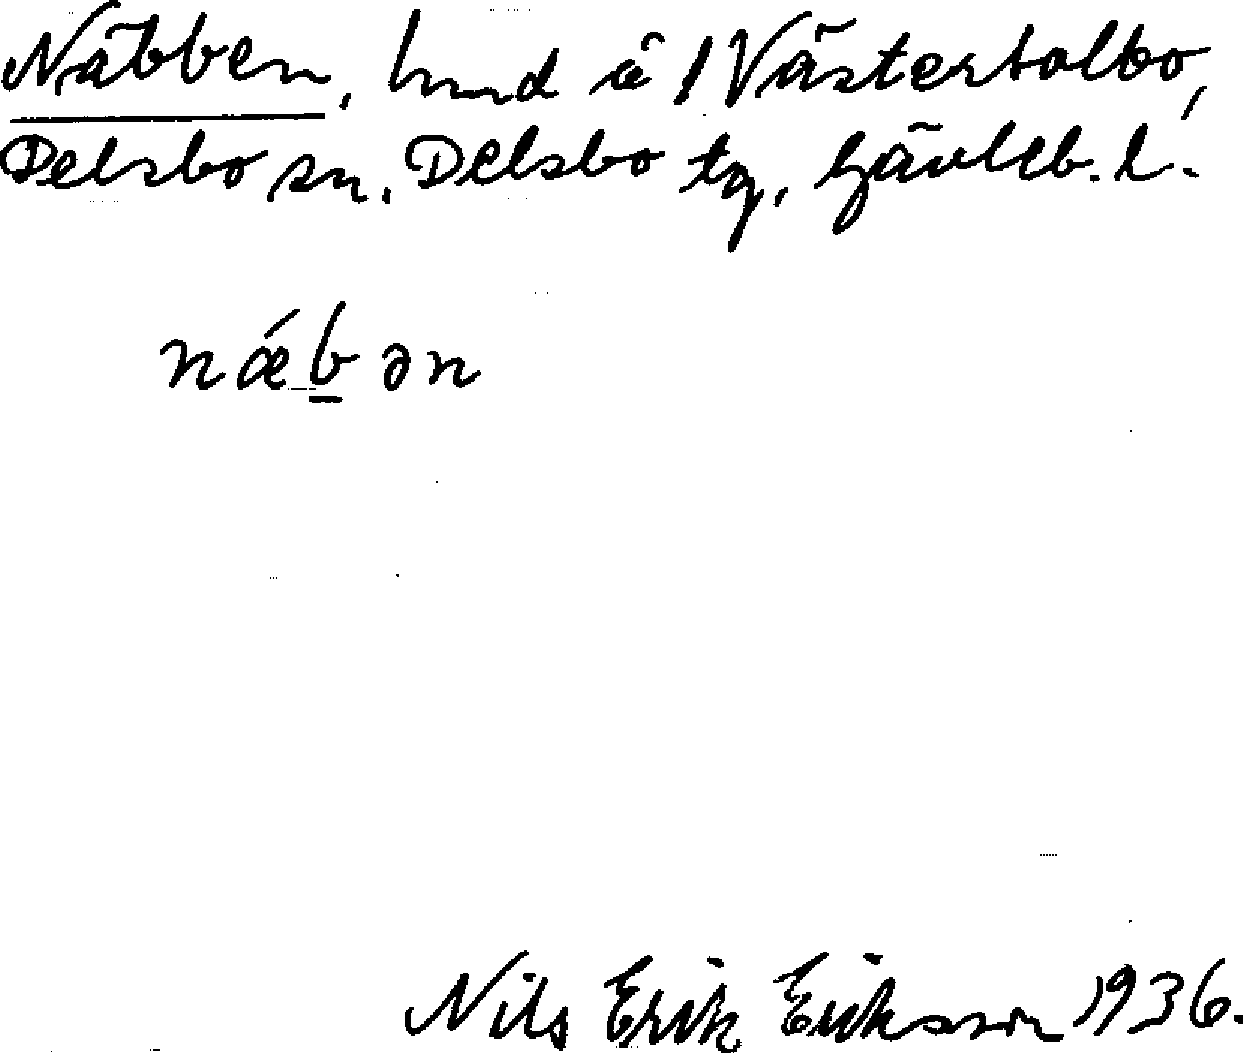 Näbben, hmd å 1 Västertalbo,
Delsbo sn. Delsbo tg, Gävleb. l.
nǽbən
Nils Erik Eriksson 1936.